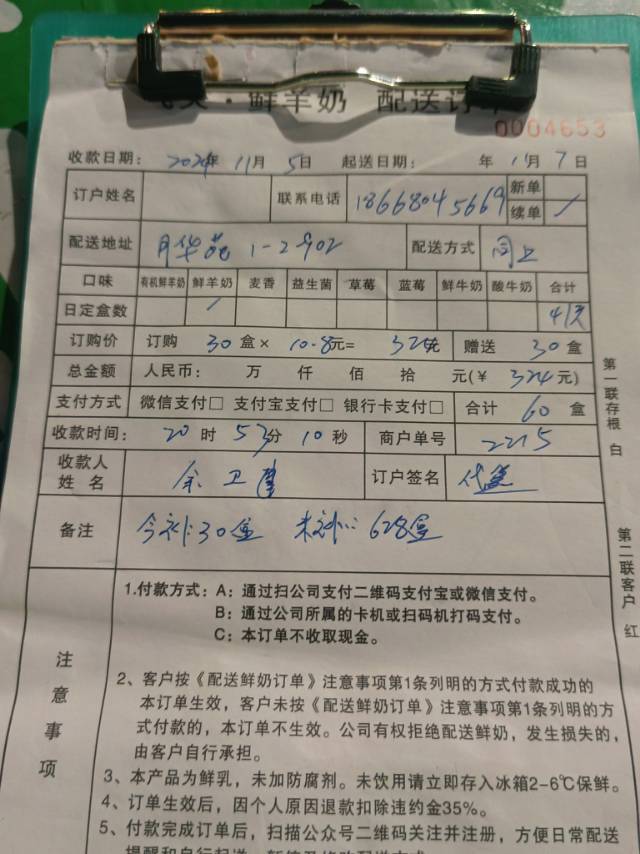 ·鲜羊奶 配送订单
0004653
收款日期: 2024年 11月 5日 起送日期: 年 11月 7日
订户姓名 联系电话 18668045669 新单
续单 /
配送地址 月华苑 1-2-902 配送方式 同上
口味 有机鲜羊奶 鲜羊奶 麦香 益生菌 草莓 蓝莓 鲜牛奶 酸牛奶 合计
日定盒数 /
订购价 订购 30 盒× 10.8元= 324元 赠送 30 盒
总金额 人民币: 万 仟 佰 拾 元(¥ 324 元)
支付方式 微信支付□ 支付宝支付□ 银行卡支付□ 合计 60 盒
收款时间: 20 时 53分 10 秒 商户单号 2215
收款人姓名 余卫 订户签名 代签
备注 今补30盒 未补 628盒
第一联存根 白
第二联客户 红
注意事项
1.付款方式: A: 通过扫公司支付二维码支付宝或微信支付。
B: 通过公司所属的卡机或扫码机打码支付。
C: 本订单不收取现金。
2、客户按《配送鲜奶订单》注意事项第1条列明的方式付款成功的
本订单生效，客户未按《配送鲜奶订单》注意事项第1条列明的方
式付款的，本订单不生效。公司有权拒绝配送鲜奶，发生损失的，
由客户自行承担。
3、本产品为鲜乳，未加防腐剂。未饮用请立即存入冰箱2-6℃保鲜。
4、订单生效后，因个人原因退款扣除违约金35%。
5、付款完成订单后，扫描公众号二维码关注并注册，方便日常配送